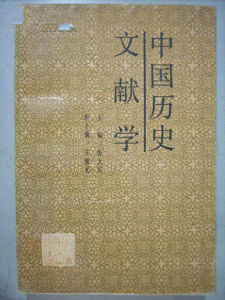 中国历史
文献学
主 编 张大可
副主编